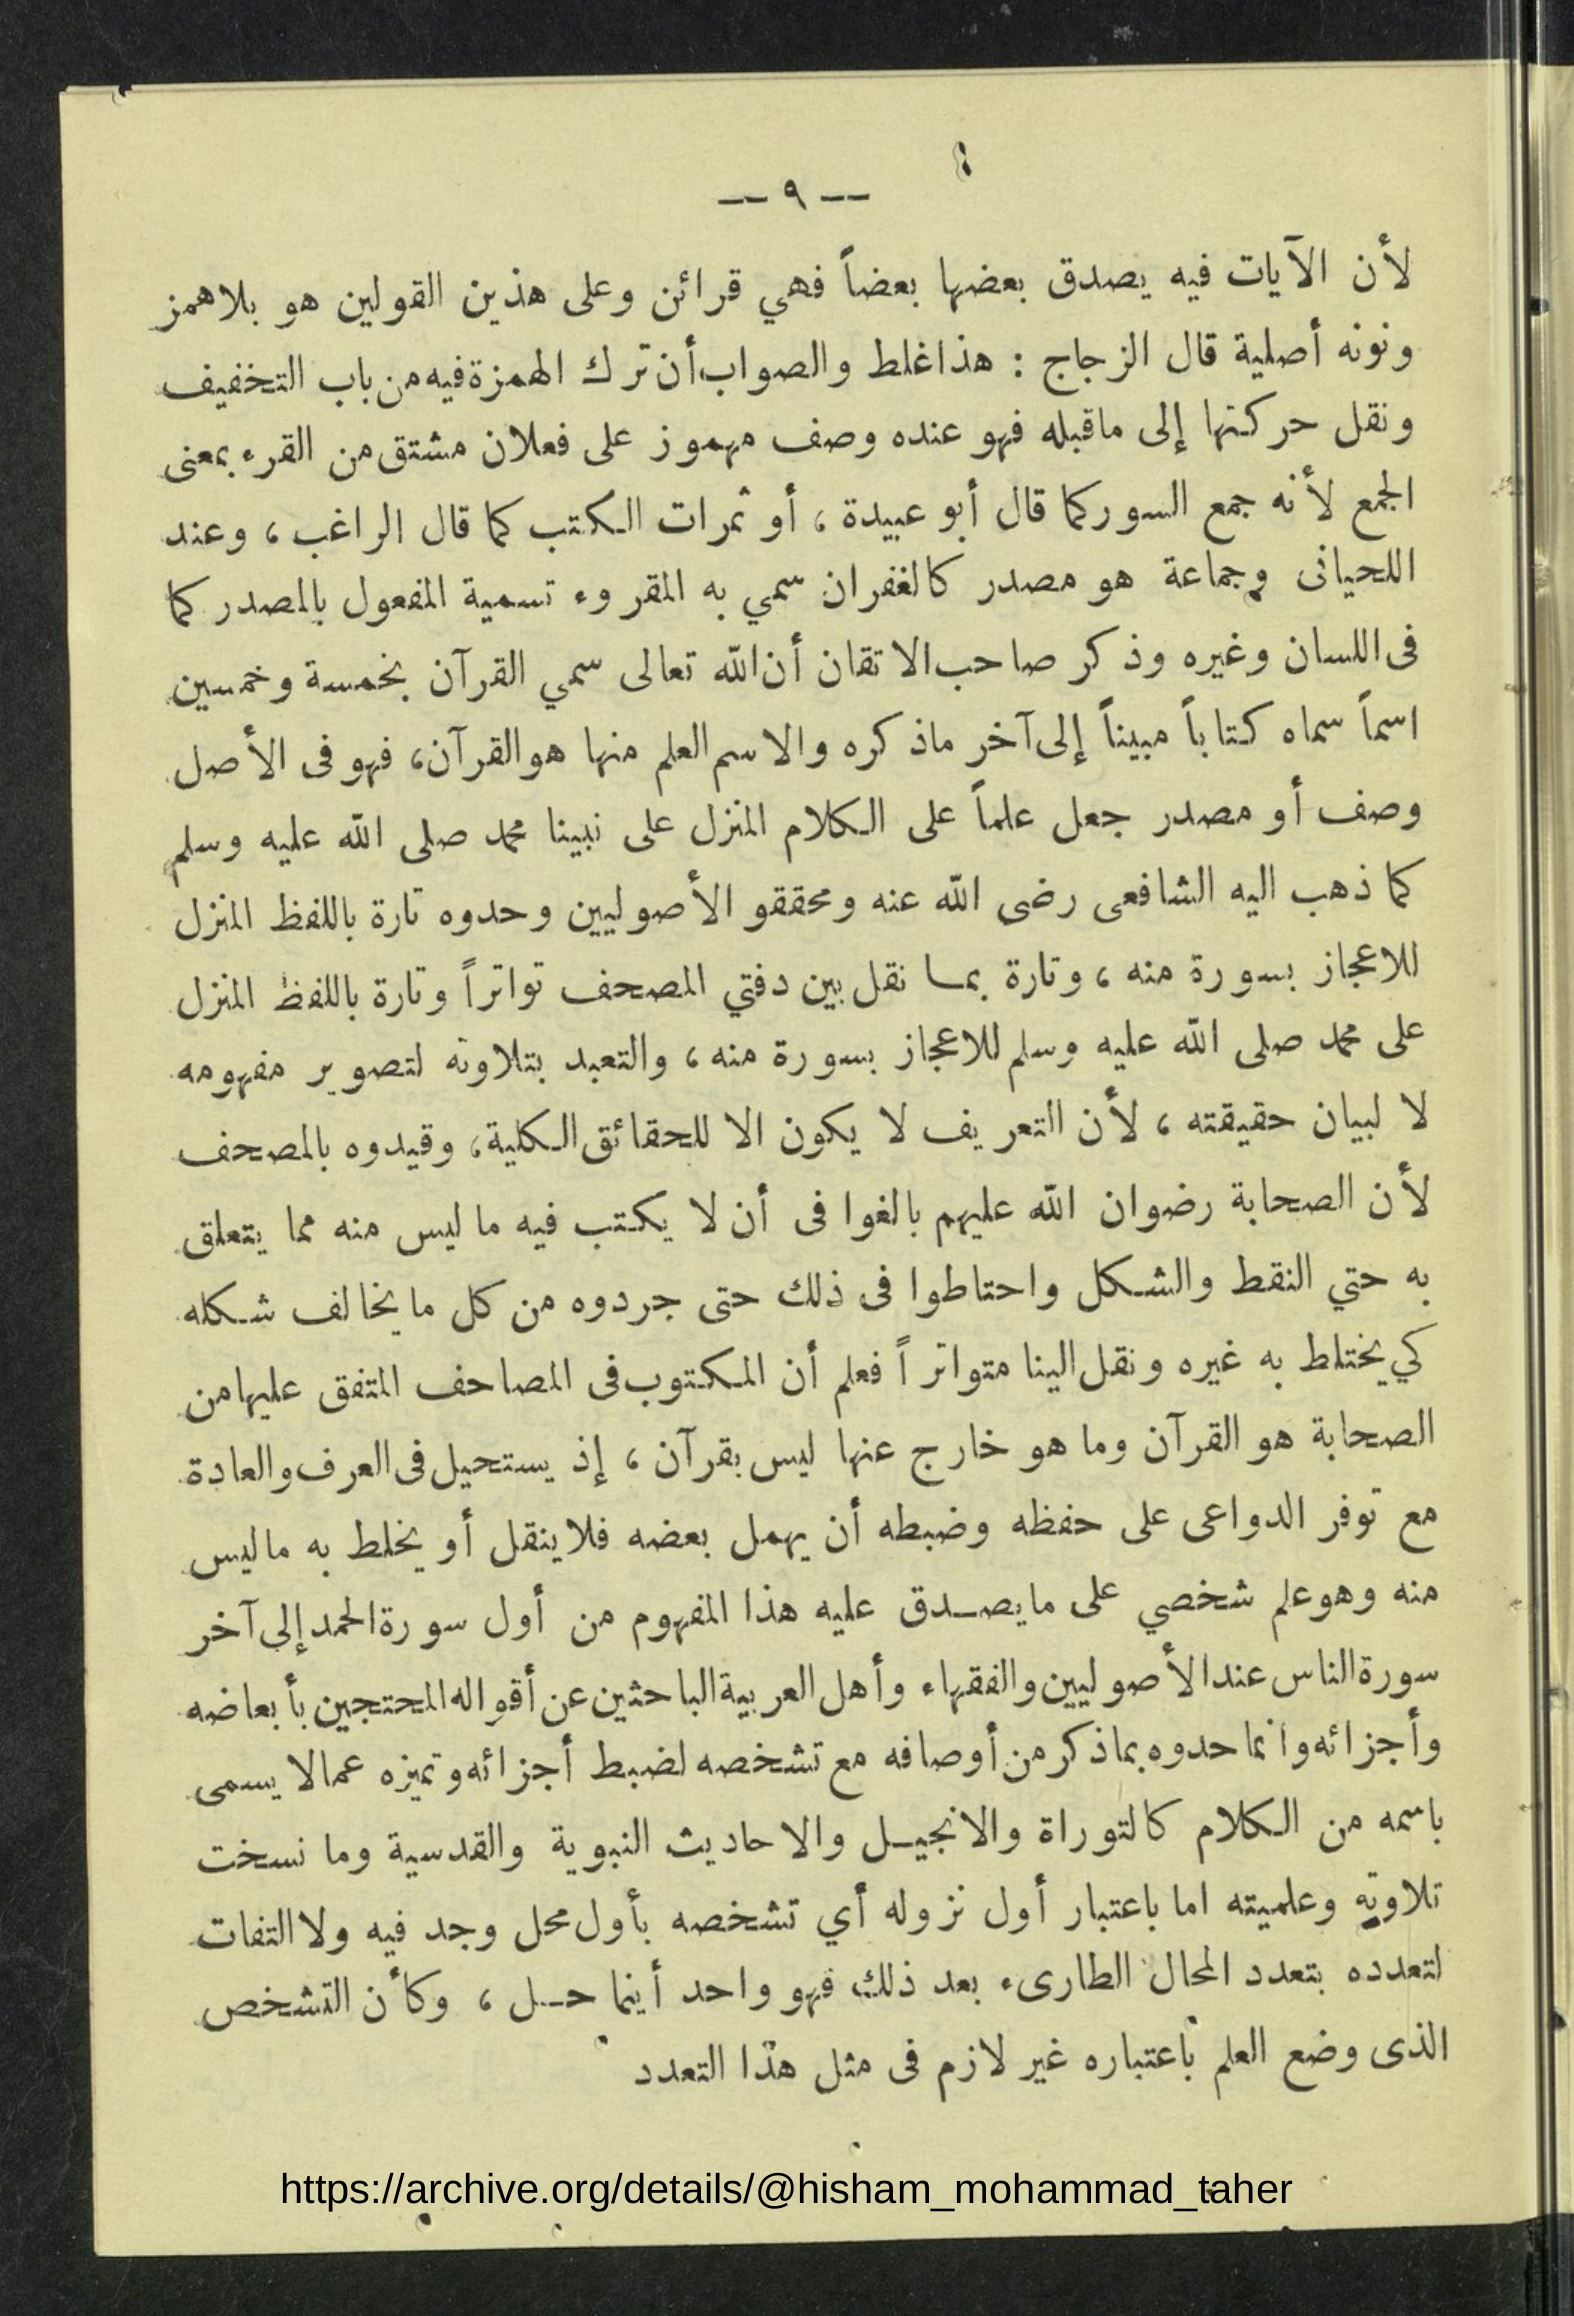 — ٩ —
لأن الآيات فيه يصدق بعضها بعضاً فهي قرائن وعلى هذين القولين هو بلا همز
ونونه أصلية قال الزجاج : هذا غلط والصواب أن ترك الهمزة فيه من باب التخفيف
ونقل حركتها إلى ماقبله فهو عنده وصف مهموز على فعلان مشتق من القرء بمعنى
الجمع لأنه جمع السور كما قال أبو عبيدة ، أو ثمرات الكتب كما قال الراغب ، وعند
اللحيانى وجماعة هو مصدر كالغفران سمي به المقروء تسمية المفعول بالمصدر كما
فى اللسان وغيره وذكر صاحب الاتقان أن الله تعالى سمي القرآن بخمسة وخمسين
اسماً سماه كتاباً مبيناً إلى آخر ماذكره والاسم العلم منها هو القرآن ، فهو فى الأصل
وصف أو مصدر جعل علماً على الكلام المنزل على نبينا محمد صلى الله عليه وسلم
كما ذهب اليه الشافعى رضى الله عنه ومحققو الأصوليين وحدوه تارة باللفظ المنزل
للاعجاز بسورة منه ، وتارة بما نقل بين دفتي المصحف تواتراً وتارة باللفظ المنزل
على محمد صلى الله عليه وسلم للاعجاز بسورة منه ، والتعبد بتلاوته لتصوير مفهومه
لا لبيان حقيقته ، لأن التعريف لا يكون الا للحقائق الكلية ، وقيدوه بالمصحف
لأن الصحابة رضوان الله عليهم بالغوا فى أن لا يكتب فيه ما ليس منه مما يتعلق
به حتي النقط والشكل واحتاطوا فى ذلك حتى جردوه من كل ما يخالف شكله
كي يختلط به غيره ونقل الينا متواتراً فعلم أن المكتوب فى المصاحف المتفق عليها من
الصحابة هو القرآن وما هو خارج عنها ليس بقرآن ، إذ يستحيل فى العرف والعادة
مع توفر الدواعى على حفظه وضبطه أن يهمل بعضه فلا ينقل أو يخلط به ماليس
منه وهو علم شخصي على مايصدق عليه هذا المفهوم من أول سورة الحمد إلى آخر
سورة الناس عند الأصوليين والفقهاء وأهل العربية الباحثين عن أقواله المحتجين بأبعاضه
وأجزائه وانما حدوه بماذكر من أوصافه مع تشخصه لضبط أجزائه وتميزه عمالا يسمى
باسمه من الكلام كالتوراة والانجيل والاحاديث النبوية والقدسية وما نسخت
تلاوته وعلميته اما باعتبار أول نزوله أي تشخصه بأول محل وجد فيه ولا التفات
لتعدده بتعدد المحال الطارىء بعد ذلك فهو واحد أينما حل ، وكأن التشخص
الذى وضع العلم باعتباره غير لازم فى مثل هذا التعدد
https://archive.org/details/@hisham_mohammad_taher